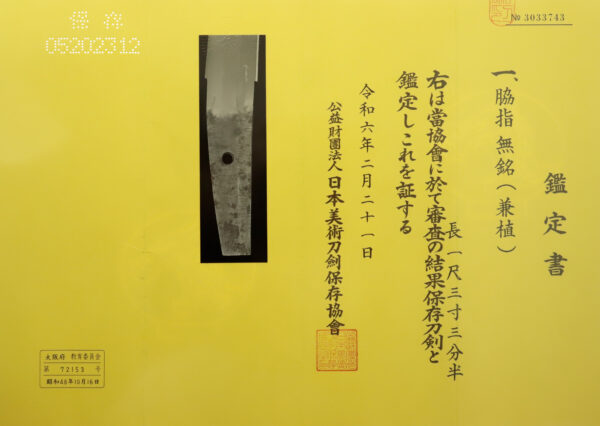 № 3033743
鑑定書
一、脇指 無銘（兼植）
長一尺三寸三分半
右は當協會に於て審査の結果保存刀剣と
鑑定しこれを証する
令和六年二月二十一日
公益財團法人 日本美術刀劍保存協會
保存
05202312
大阪府 教育委員会
第 72153 号
昭和48年10月16日